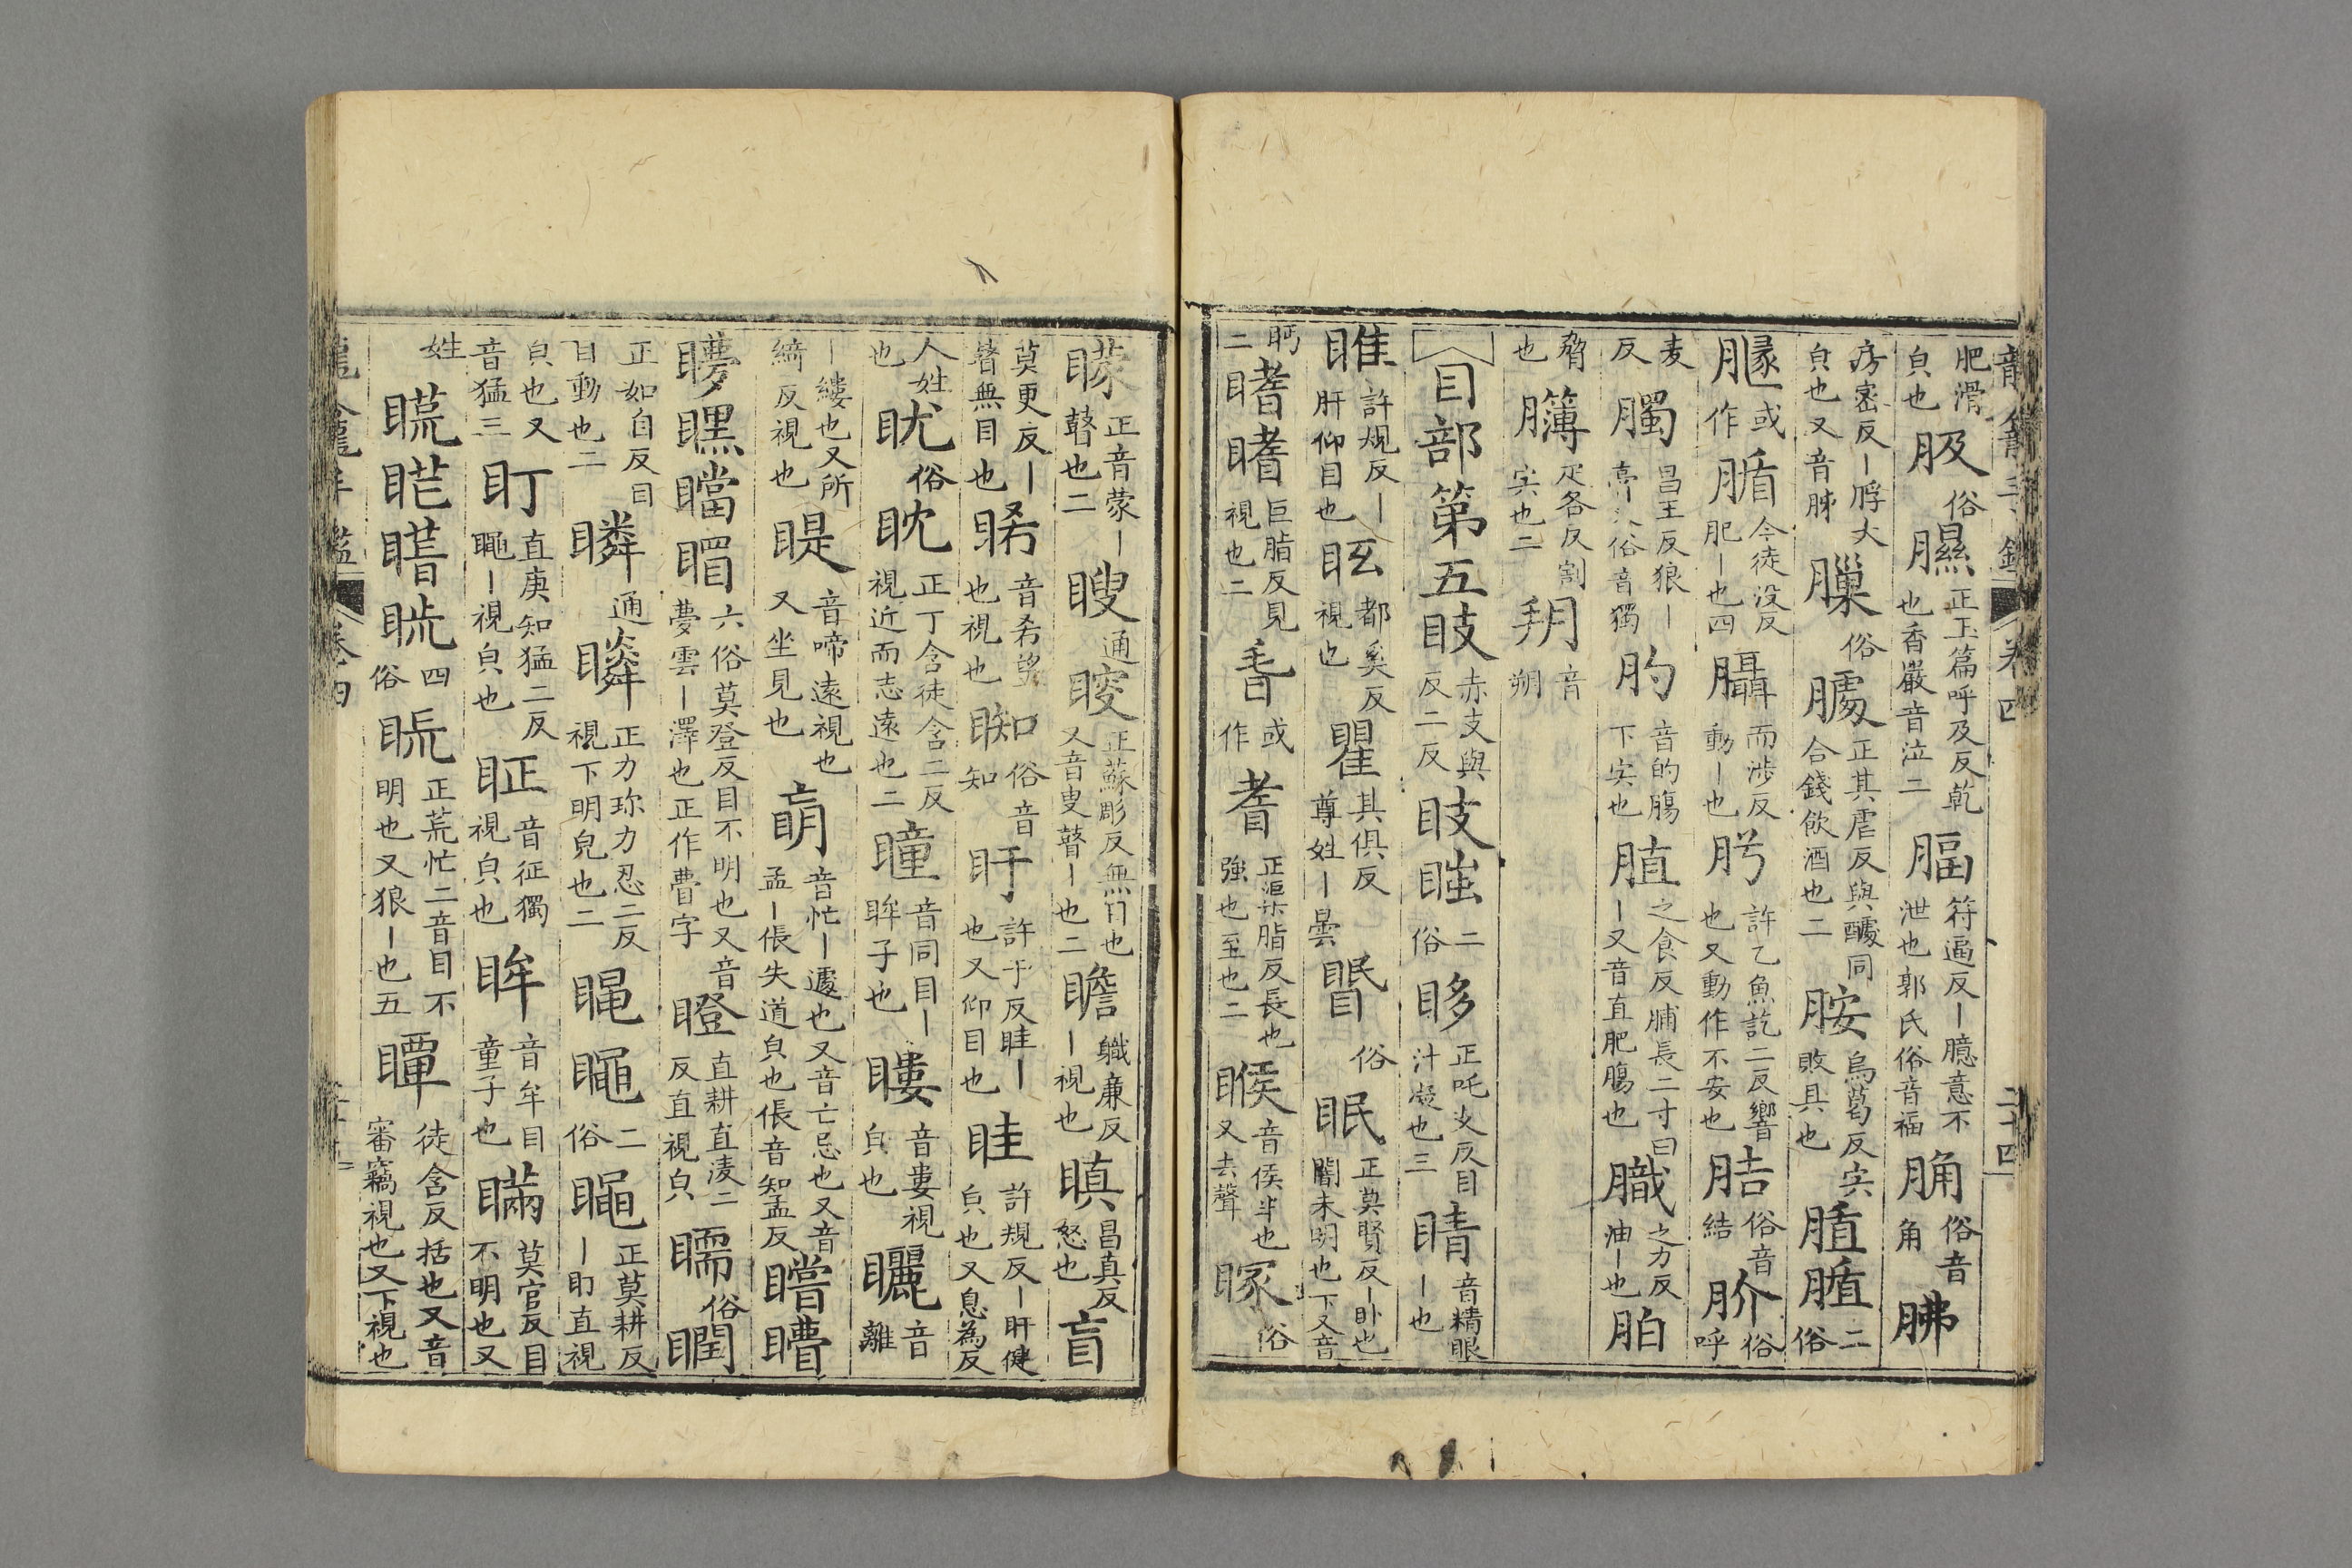 肥滑㒵也肷俗㬤正玉篇呼及反乾也香嚴音泣二腷符逼反丨臆意不泄也郭氏俗音福𦛨俗音角胇
房密反丨脬大㒵也又音胇樔俗臄正其虐反與醵同合錢飲酒也二胺烏葛反宍敗具也腯腯二俗
腞或作腯今徒没反肥丨也四䐑而涉反動丨也肹許乙魚訖二反響也又動作不安也𦙶俗音結䏟俗呼
麦反臅昌王反狼丨膏又俗音獨肑音的膓下宍也䐈之食反脯長二寸曰丨又音直肥膓也膱之力反油丨也胉
膋也䪇疋各反割宍也二玥音朔
目部第五䀢赤支與反二反䀢瞣二俗眵正吒支反目汁凝也三睛音精眼丨也
睢許規反丨盱仰目也眩都奚反視也瞿其俱反尊姓丨曇瞖俗眠正莫賢反丨卧也闇未明也下又音
眄二𥊀𥊀巨脂反見視也二𦒿或作耆正渠脂反長也強也至也二睺音侯半也又去聲䝉俗
矇正音蒙丨瞽也二瞍通䁖正蘇彫反無目也又音叟瞽丨也二瞻職廉反丨視也瞋昌真反怒也盲
莫更反丨瞽無目也睎音希望也視也䁈俗音知盱許于反眭丨也又仰目也眭許規反丨盱健㒵也又息為反
人姓也眈俗眈正丁含徒含二反視近而志遠也二瞳音同目丨眸子也瞜音婁視㒵也矖音離
丨縷也又所綺反視也睼音啼遠視也又坐見也𥆞音忙丨遽也又音亡忌也又音孟丨倀失道㒵也倀音知孟反瞺䁬
矒䁫瞠䁋六俗莫登反目不明也又音夢雲丨澤也正作瞢字瞪直耕直淩二反直視㒵䁱俗瞤
正如勻反目目動也二瞵通瞵正力珍力忍二反視下明皃也二䁇䁇二俗䁇正莫耕反丨盯直視
㒵也又音猛三盯直庚知猛二反䁇丨視㒵也眐音征獨視㒵也眸音牟目童子也瞞莫官反目不明也又
姓䁜𥇀𥊙䀮四俗䀮正荒忙二音目不明也又狼丨也五瞫徒含反括也又音審竊視也又下視也